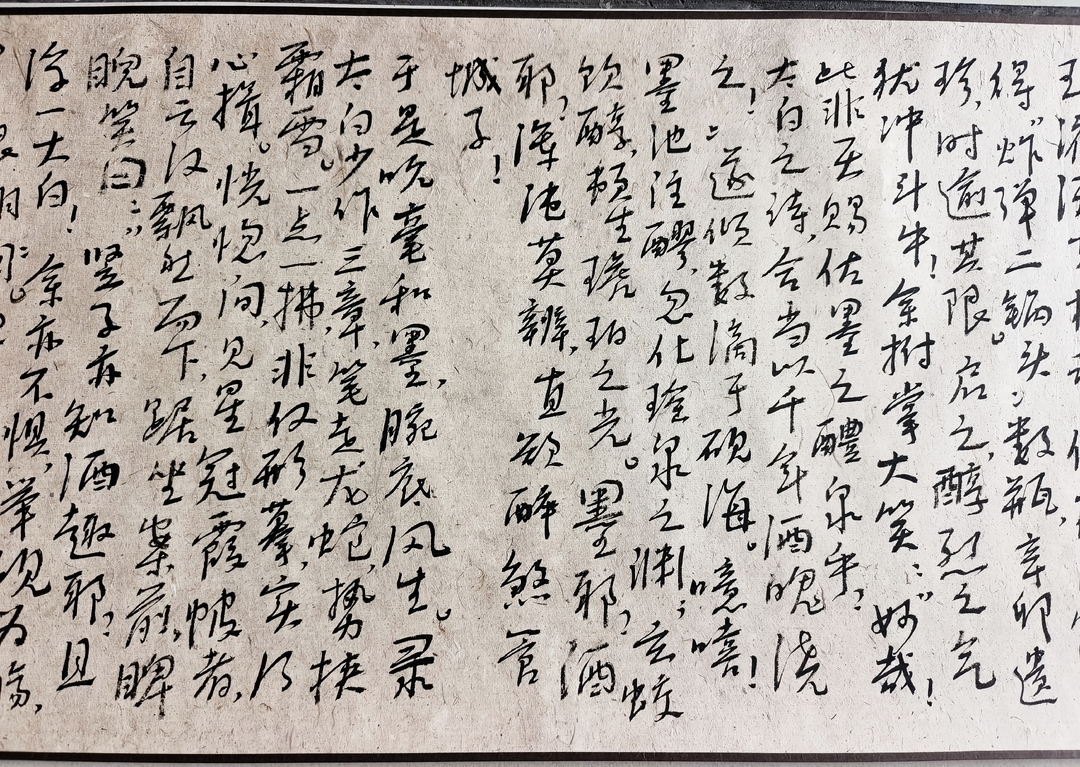 得“炸弹二锅头”数瓶，辛卯遗
珍，时逾其限。启之，醇烈之气
犹冲斗牛！余拊掌大笑：“妙哉！
此非天赐佐墨之醴泉乎？
太白之诗，合当以千年酒魄浇
之！”遂倾数滴于砚海。噫嘻！
墨池注醪，忽化瑶泉之渊；玄蛟
饮醇，顿生琥珀之光。墨耶？酒
耶？浑沌莫辨，直欲醉煞管
城子！
于是吮毫和墨，腕底风生。录
太白少作三章，笔走龙蛇，势挟
霜雪。一点一拂，非仅形摹，实乃
心揖。恍惚间，见星冠霞帔者，
自云汉飘然而下，踞坐案前，睥
睨笑曰：“竖子亦知酒趣耶？且
浮一大白！”余亦不惧，举砚为觞，